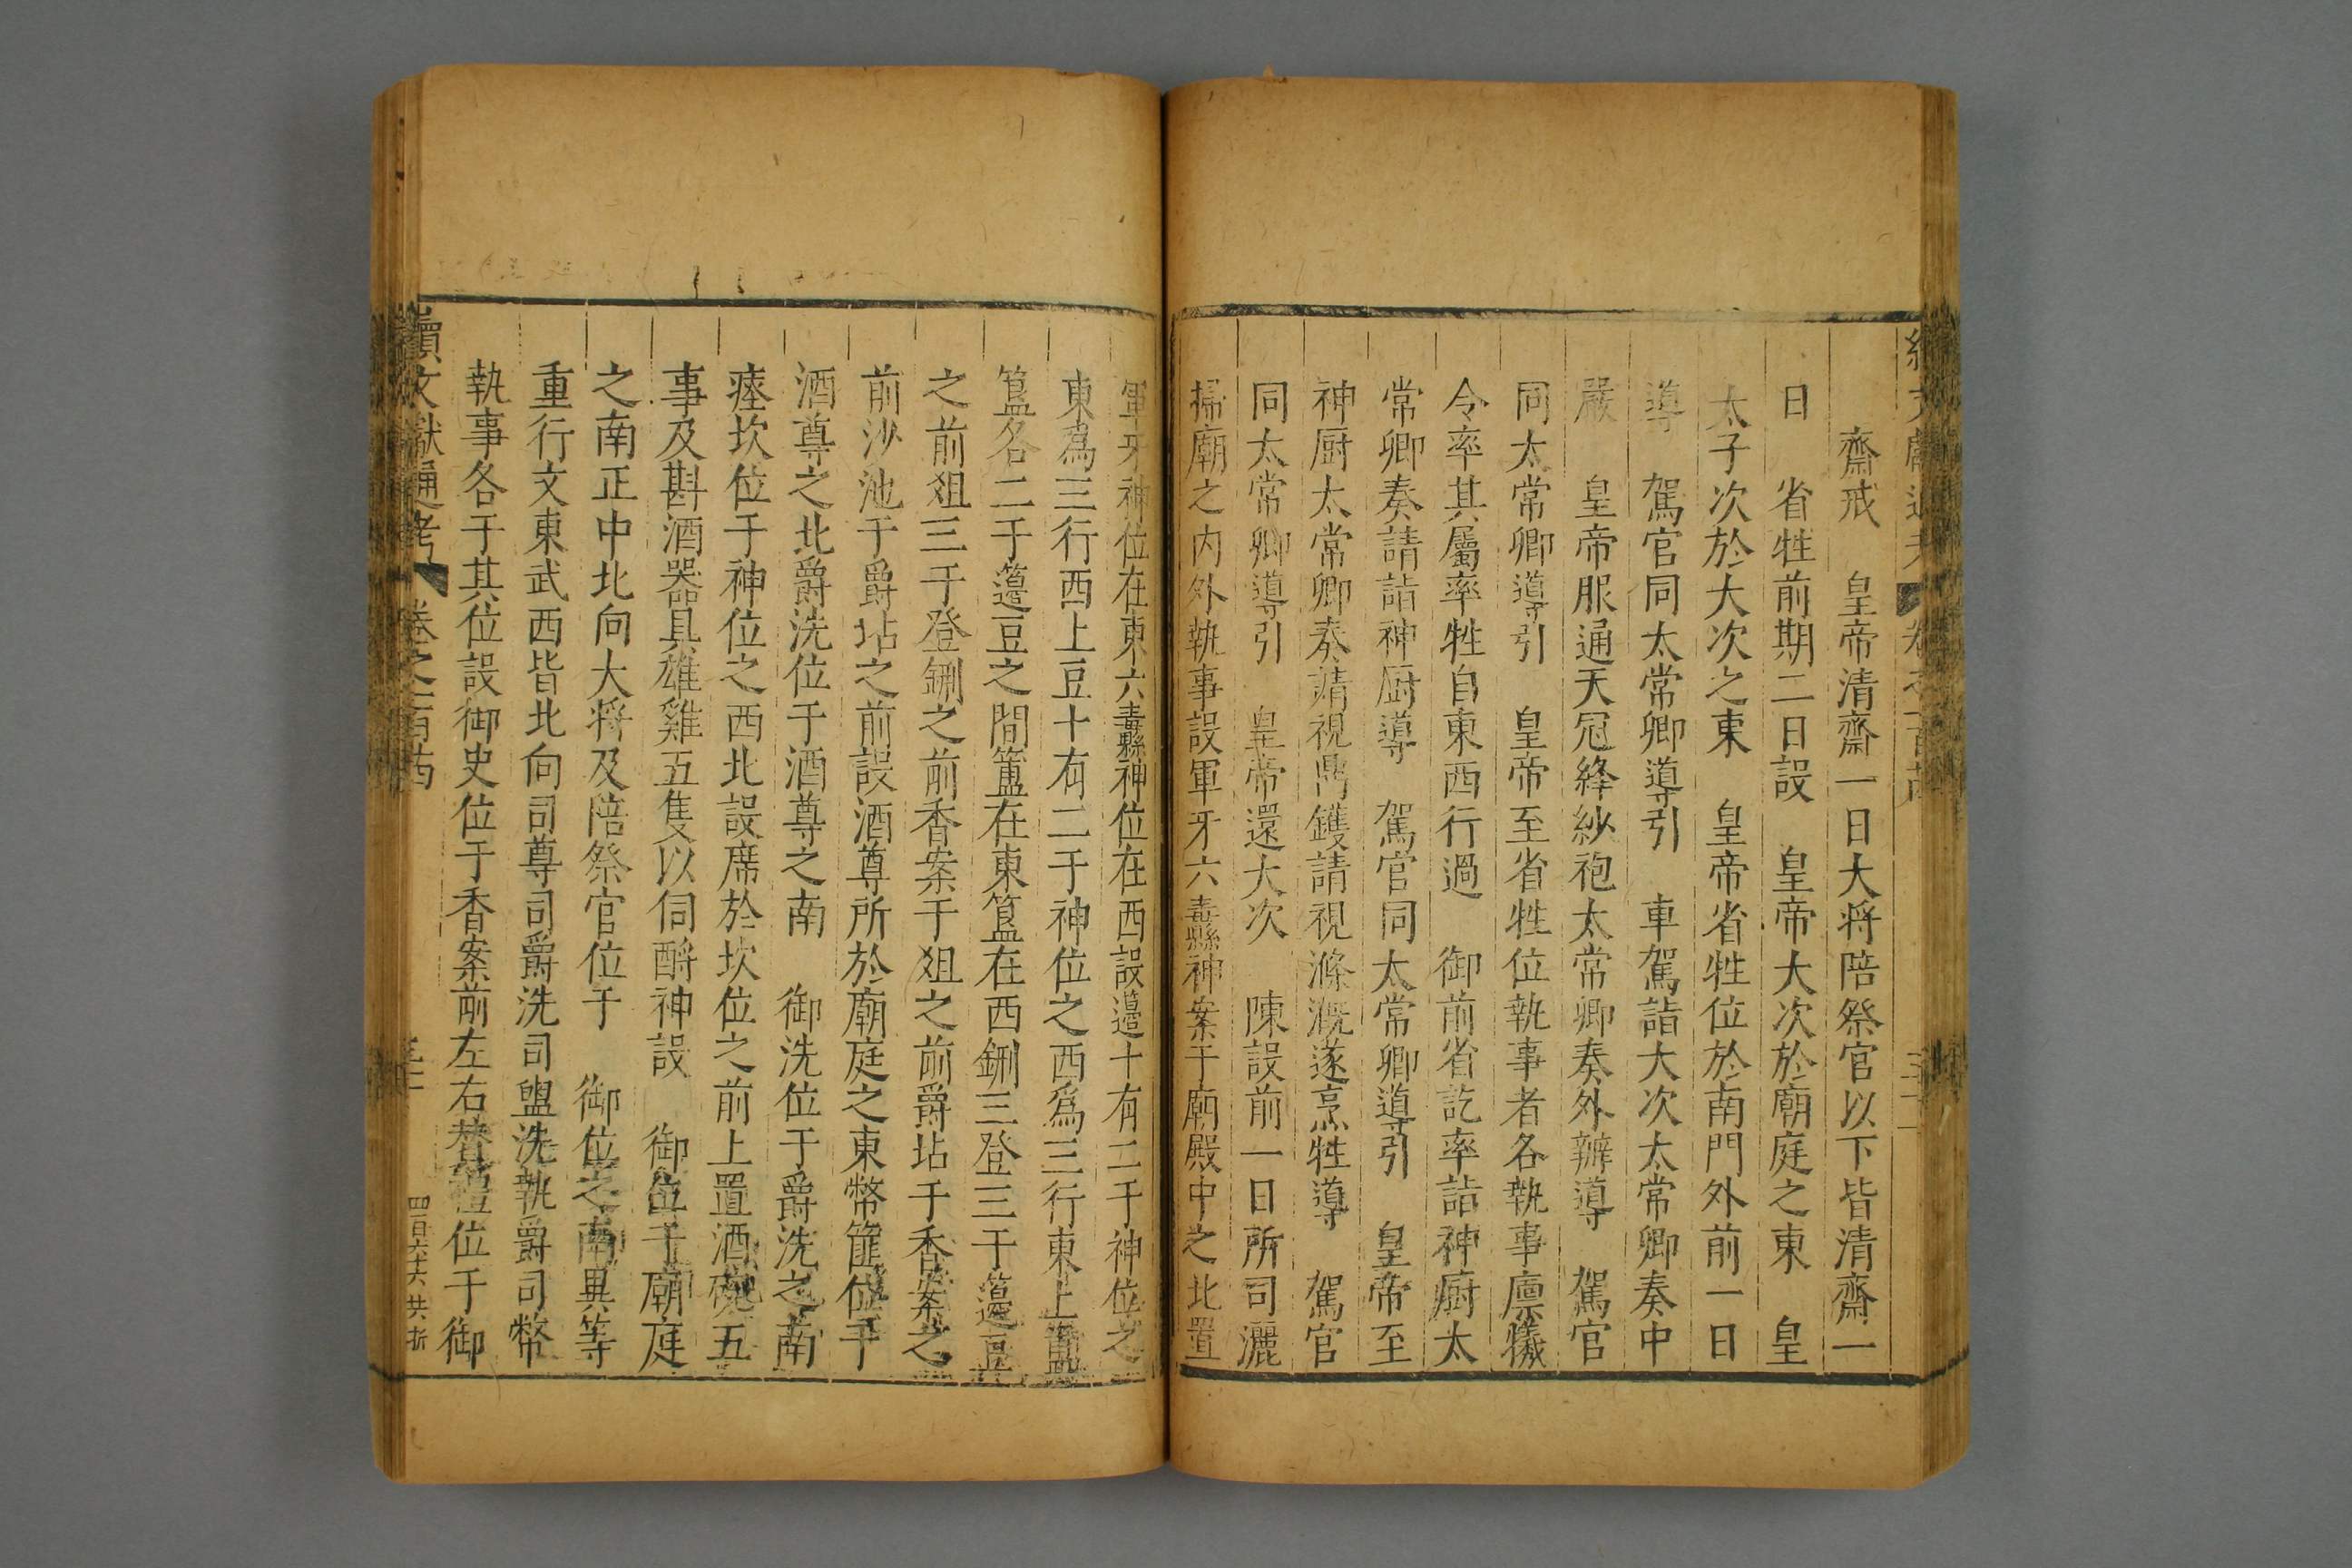 齋戒　皇帝清齋一日大将陪祭官以下皆清齋一
日　省牲前期二日設　皇帝大次於廟庭之東　皇
太子次於大次之東　皇帝省牲位於南門外前一日
導　駕官同太常卿導引　車駕詣大次太常卿奏中
嚴　皇帝服通天冠絳紗袍太常卿奏外辦導　駕官
同太常卿導引　皇帝至省牲位執事者各執事廪犧
令率其屬率牲自東西行過　御前省訖率詣神厨太
常卿奏請詣神厨導　駕官同太常卿導引　皇帝至
神厨太常卿奏請視鼎鑊請視滌溉遂烹牲導　駕官
同太常卿導引　皇帝還大次　陳設前一日所司灑
掃廟之内外執事設軍牙六纛神案于廟殿中之北置
軍牙神位在東六纛神位在西設籩十有二于神位之
東為三行西上豆十有二于神位之西為三行東上簠
簋各二于籩豆之間簠在東簋在西鉶三登三于籩豆
之前俎三于登鉶之前香案于俎之前爵坫于香案之
前沙池于爵坫之前設酒尊所於廟庭之東幣篚位于
酒尊之北爵洗位于酒尊之南　御洗位于爵洗之南
瘞坎位于神位之西北設席於坎位之前上置酒碗五
事及斟酒器具雄雞五隻以伺酹神設　御位于廟庭
之南正中北向大将及陪祭官位于　御位之南異等
重行文東武西皆北向司尊司爵洗司盥洗執爵司幣
執事各于其位設御史位于香案前左右贊禮位于御
續文獻通考　卷之一百
四百六十六　共折